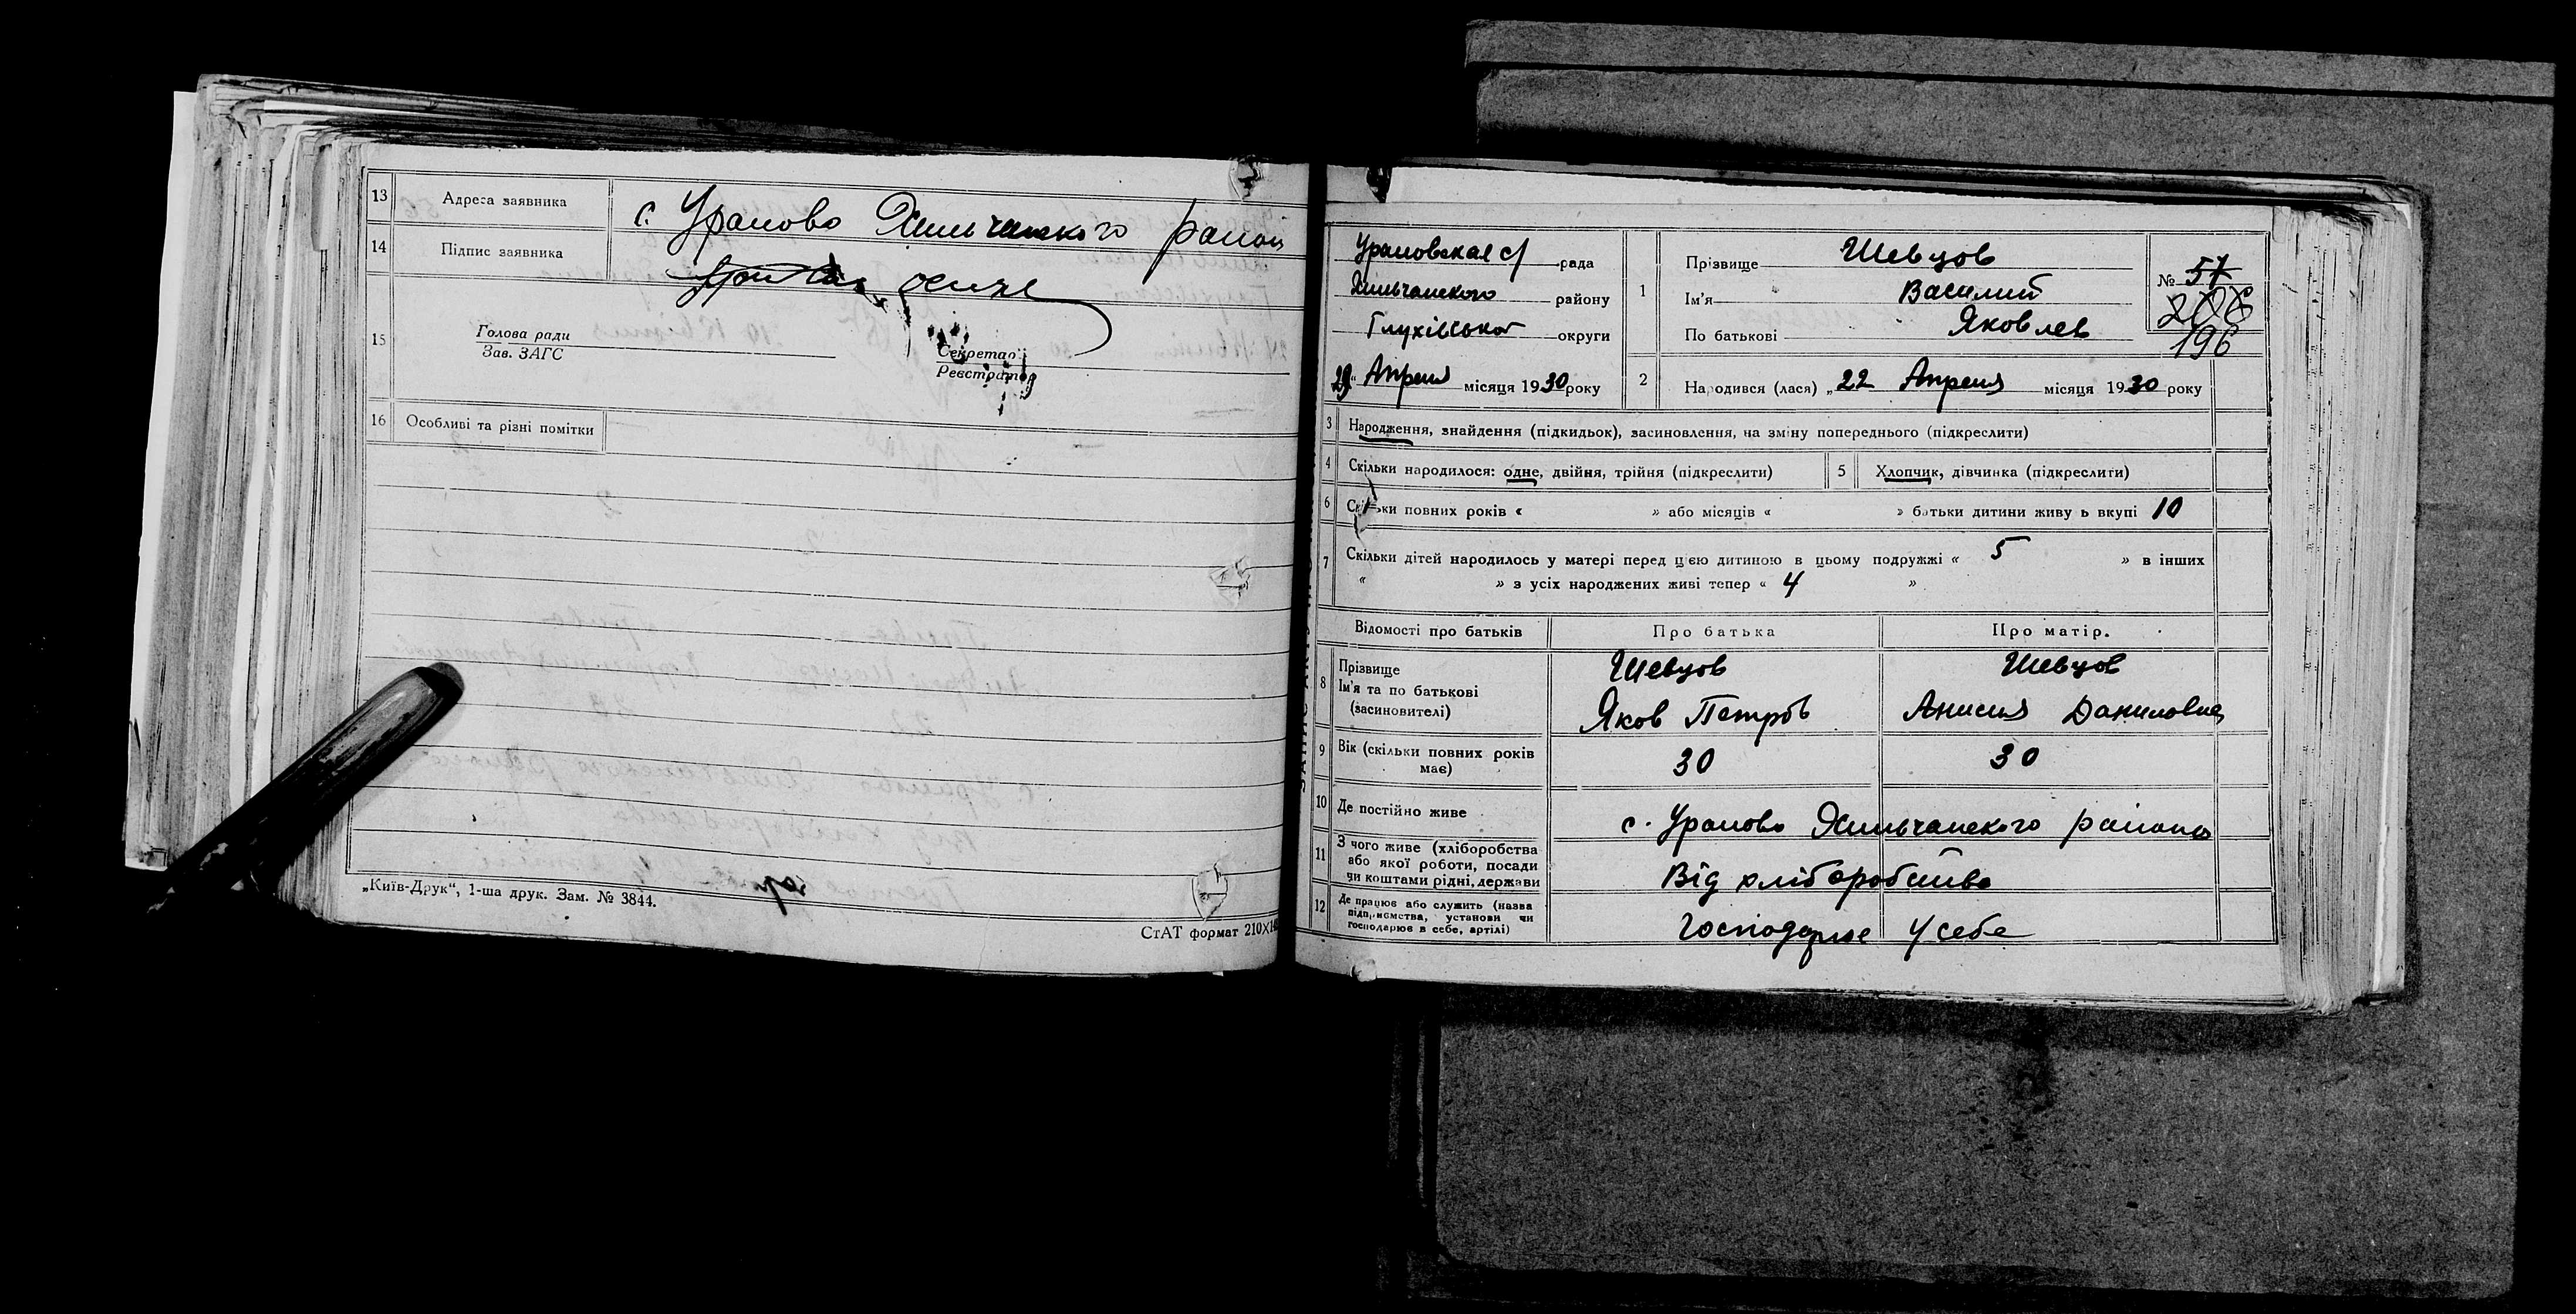 13 Адреса заявника с. Уралово Хильчанского район
14 Підпис заявника
15 Голова ради
Зав. ЗАГС
Секретар
Реєстратор
16 Особливі та різні помітки
„Київ-Друк“, 1-ша друк. Зам. № 3844.
СтАТ формат 210×1
Ураловская с/ рада
Хильчанского району
Глухівської округи
29 Апреля місяця 1930 року
1 Прізвище Шевцов
Ім'я Василий
По батькові Яковлев
№ 57
206
196
2 Народився (лася) „22 Апреля місяця 1930 року
3 Народження, знайдення (підкидьок), засиновлення, на зміну попереднього (підкреслити)
4 Скільки народилося: одне, двійня, трійня (підкреслити)
5 Хлопчик, дівчинка (підкреслити)
6 Скільки повних років « » або місяців « » батьки дитини живуть вкупі 10
7 Скільки дітей народилось у матері перед цією дитиною в цьому подружжі « 5 » в інших
« » з усіх народжених живі тепер « 4 »
Відомості про батьків Про батька Про матір.
8 Прізвище Шевцов Шевцов
Ім'я та по батькові Яков Петров Анисия Даниловна
(засиновителі)
9 Вік (скільки повних років має) 30 30
10 Де постійно живе с. Уралово Хильчанского района
11 З чого живе (хліборобства
або якої роботи, посади
чи коштами рідні, держави Від хліборобства
12 Де працює або служить (назва
підприємства, установи чи
господарює в себе, артілі) Господарює у себе